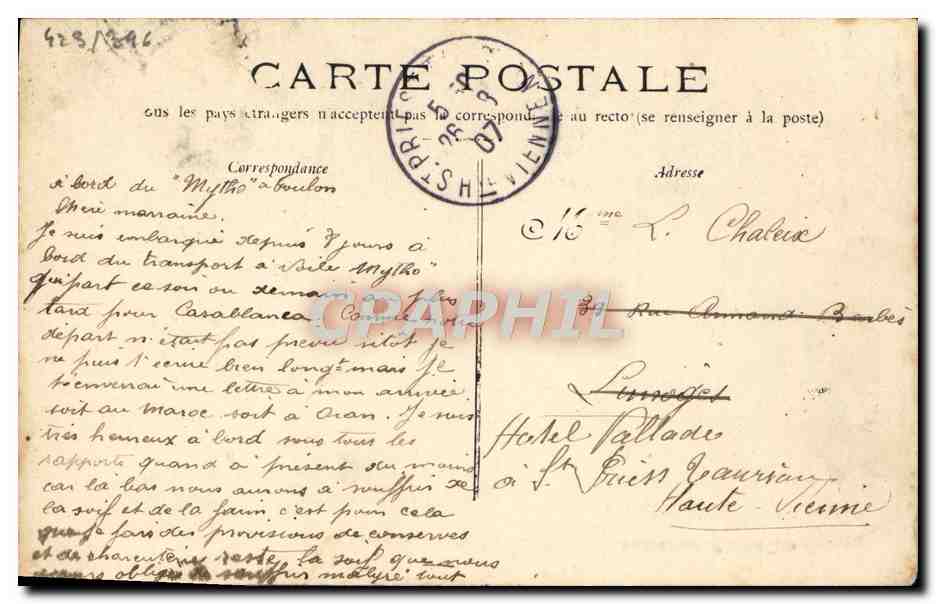 423/396
CARTE POSTALE
ous les pays étrangers n'acceptent pas la correspond e au recto (se renseigner à la poste)
ST PRIEST HTE VIENNE
5 26 8 07
Correspondance
Adresse
à bord du "Mytho" a Toulon
Chère marraine.
Je suis embarqué depuis 8 jours à
bord du transport à voile Mytho"
qui part ce soir ou demain au plus
tard pour Casablanca Comme notre
départ n'était pas prévu sitôt je
ne puis t'écrire bien longt mais je
t'enverrai une lettre à mon arrivée
soit au Maroc soit à Oran. Je suis
très heureux à bord sous tous les
rapports quand à présent du moins
car là bas nous aurons à souffrir de
la soif et de la faim c'est pour cela
que je fais des provisions de conserves
et de charcuterie reste la soif que nous
serons obligé de souffrir malgré tout
Mme L. Chaleix
Rue Armand Barbès
Limoges
Hotel Pallade
à St Priest Taurion
Haute-Vienne
CPAPHIL